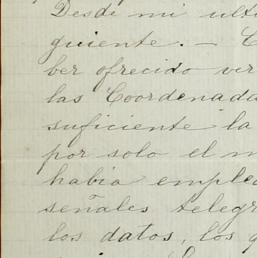 Desde mi ulti
guiente. — C
ber ofrecido ver
las Coordenada
suficiente la
por solo el m
habia emplea
señales telegr
los datos, los q